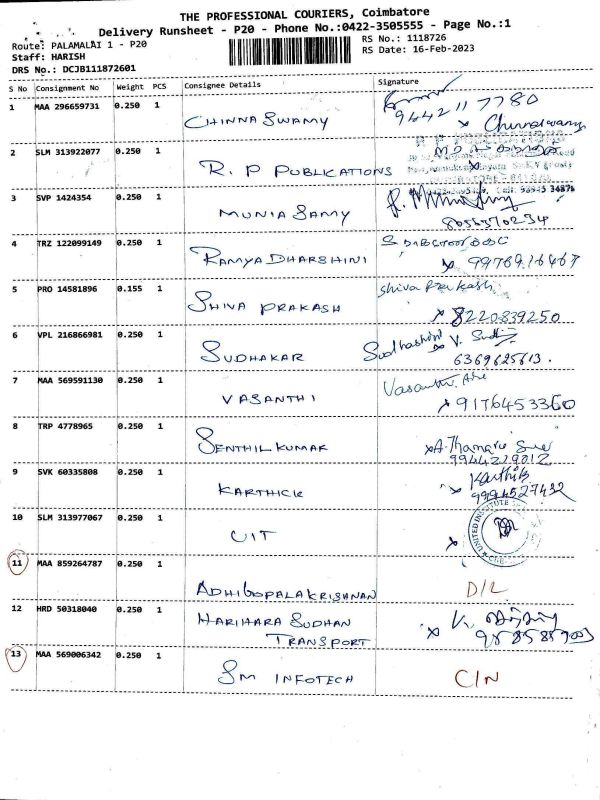 THE PROFESSIONAL COURIERS, Coimbatore
Delivery Runsheet - P20 - Phone No.:0422-3505555 - Page No.:1
Route: PALAMALAI 1 - P20 RS No.: 1118726
Staff: HARISH RS Date: 16-Feb-2023
DRS No.: DCJB111872601
S No Consignment No Weight PCS Consignee Details Signature
1 MAA 296659731 0.250 1
9442117780
CHINNA SWAMY x Chinnaswamy
2 SLM 313922077 0.250 1
R. P PUBLICATIONS
3 SVP 1424354 0.250 1
MUNIA SAMY
8056370234
4 TRZ 122099149 0.250 1
RAMYA DHARSHINI x 9976916467
5 PRO 14581896 0.155 1 Shiva Prakash
SHIVA PRAKASH x 8220839250
6 VPL 216866981 0.250 1
SUDHAKAR 6369625613.
7 MAA 569591130 0.250 1
VASANTHI x 9176453360
8 TRP 4778965 0.250 1
SENTHIL KUMAR
9944229012
9 SVK 60335808 0.250 1 Karthik
KARTHICK x 9994527432
10 SLM 313977067 0.250 1 UNITED INSTITUTE
UIT x
11 MAA 859264787 0.250 1
ADHIGOPALAKRISHNAN D/L
12 HRD 50318040 0.250 1
HARIHARA SUDHAN
TRANSPORT x
13 MAA 569006342 0.250 1
SM INFOTECH C/N